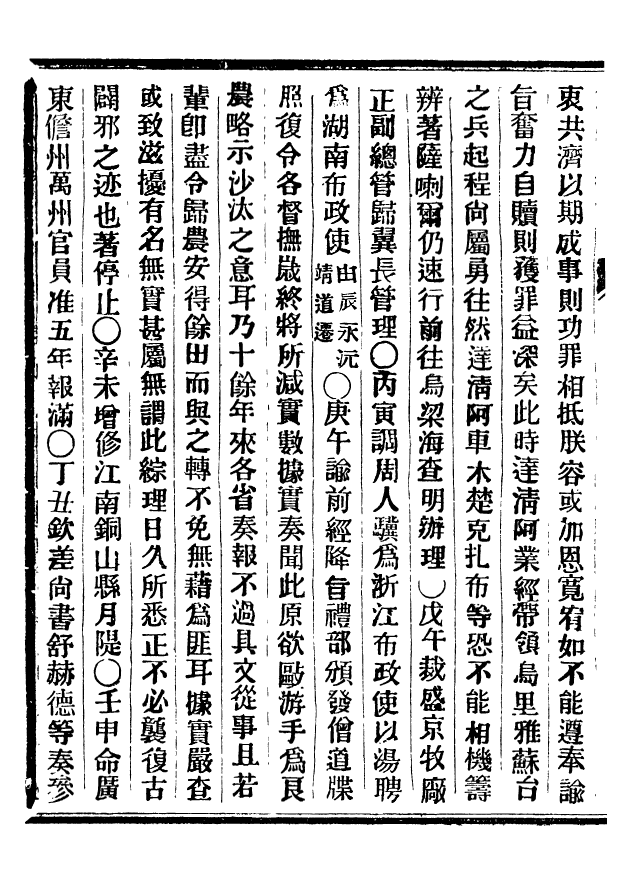 衷共濟以期成事則功罪相抵朕容或加恩寬宥如不能遵奉諭
旨奮力自贖則獲罪益深矣此時達淸阿業經帶領烏里雅蘇台
之兵起程尙屬勇往然達淸阿車木楚克扎布等恐不能相機籌
辨著薩喇爾仍速行前往烏梁海查明辦理〇戊午裁盛京牧廠
正副總管歸翼長管理〇丙寅調周人驥爲浙江布政使以湯聘
爲湖南布政使由辰永沅靖道遷〇庚午諭前經降旨禮部頒發僧道牒
照復令各督撫歲終將所減實數據實奏聞此原欲敺游手爲良
農略示沙汰之意耳乃十餘年來各省奏報不過具文從事且若
輩卽盡令歸農安得餘田而與之轉不免無藉爲匪耳據實嚴查
或致滋擾有名無實甚屬無謂此綜理日久所悉正不必襲復古
闢邪之迹也著停止〇辛未增修江南銅山縣月隄〇壬申命廣
東儋州萬州官員准五年報滿〇丁丑欽差尙書舒赫德等奏參